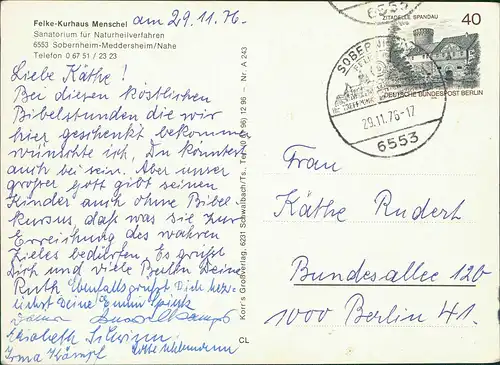 Felke-Kurhaus Menschel
am 29.11.76.
Sanatorium für Naturheilverfahren
6553 Sobernheim-Meddersheim/Nahe
Telefon 0 67 51 / 23 23
Liebe Käthe!
Bei diesen köstlichen
Bibelstunden die wir
hier geschenkt bekommen
wünschte ich, Du könntest
auch bei sein. Aber unser
großer Gott gibt seinen
Kinder auch ohne Bibel-
kursus, daß was sie zur
Erreichung des wahren
Zieles bedürfen. Es grüßt
Dich und viele Berlin Deine
Ruth Ebenfalls grüßt Dich herz-
lichst Deine
Elisabeth
Irma Krämpf
Korr's Großverlag, 6231 Schwalbach/Ts., Tel. (0 61 96) 12 96 – Nr. A 243
CL
6553
ZITADELLE SPANDAU
40
DEUTSCHE BUNDESPOST BERLIN
29.11.76-17
6553
Frau
Käthe Rudert
Bundesallee 120
1000 Berlin 41.